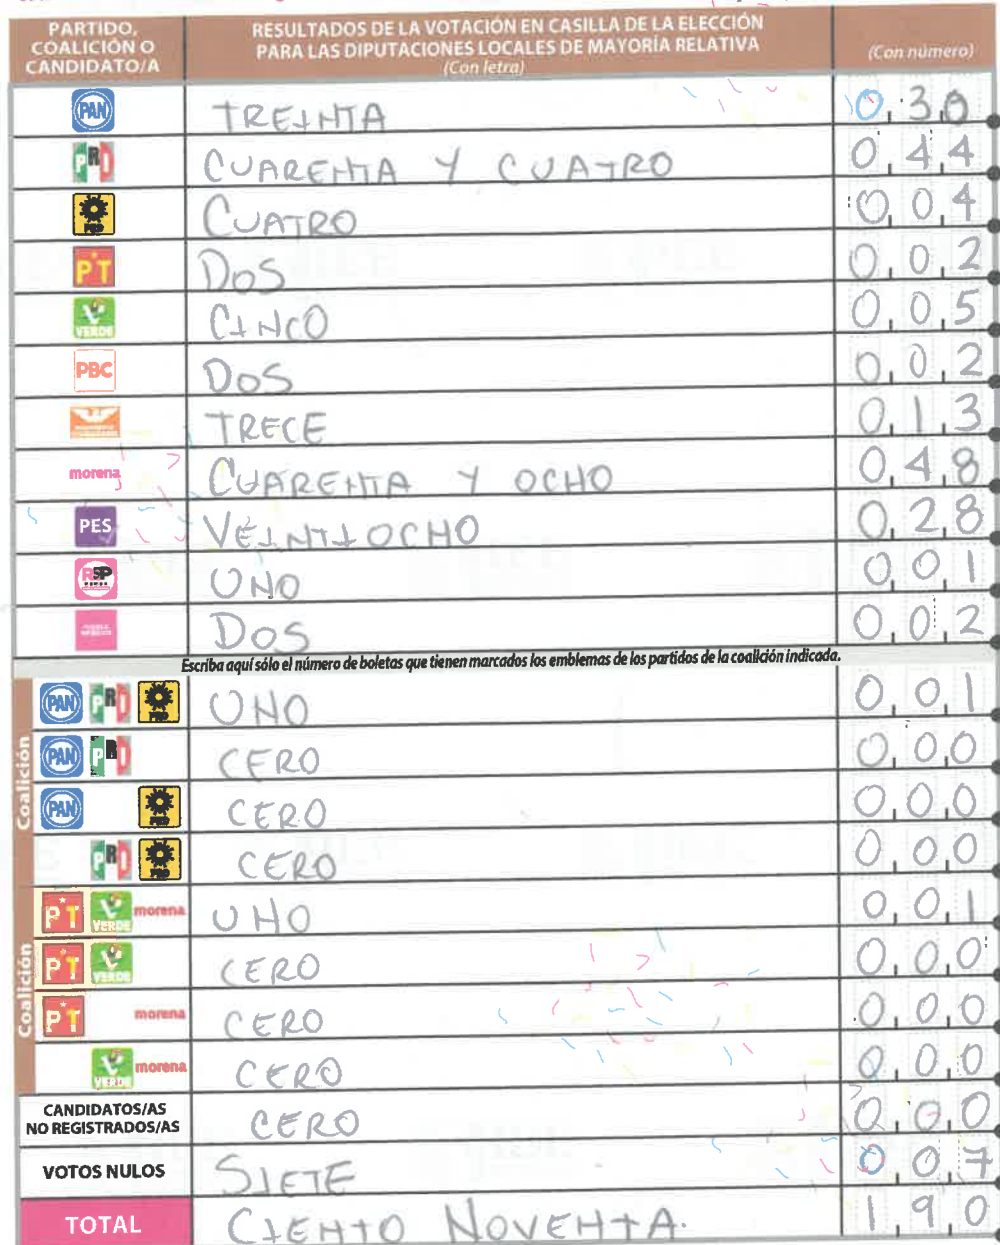 PARTIDO, COALICIÓN O CANDIDATO/A
RESULTADOS DE LA VOTACIÓN EN CASILLA DE LA ELECCIÓN PARA LAS DIPUTACIONES LOCALES DE MAYORÍA RELATIVA
(Con letra)
(Con número)
PAN TREINTA 030
PRI CUARENTA Y CUATRO 044
PRD CUATRO 004
PT DOS 002
VERDE CINCO 005
PBC DOS 002
TRECE 013
morena CUARENTA Y OCHO 048
PES VEINTIOCHO 028
RSP UNO 001
DOS 002
Escriba aquí sólo el número de boletas que tienen marcados los emblemas de los partidos de la coalición indicada.
Coalición
PAN PRI PRD UNO 001
PAN PRI CERO 000
PAN PRD CERO 000
PRI PRD CERO 000
Coalición
PT VERDE morena UNO 001
PT VERDE CERO 000
PT morena CERO 000
VERDE morena CERO 000
CANDIDATOS/AS NO REGISTRADOS/AS CERO 000
VOTOS NULOS SIETE 007
TOTAL CIENTO NOVENTA. 190